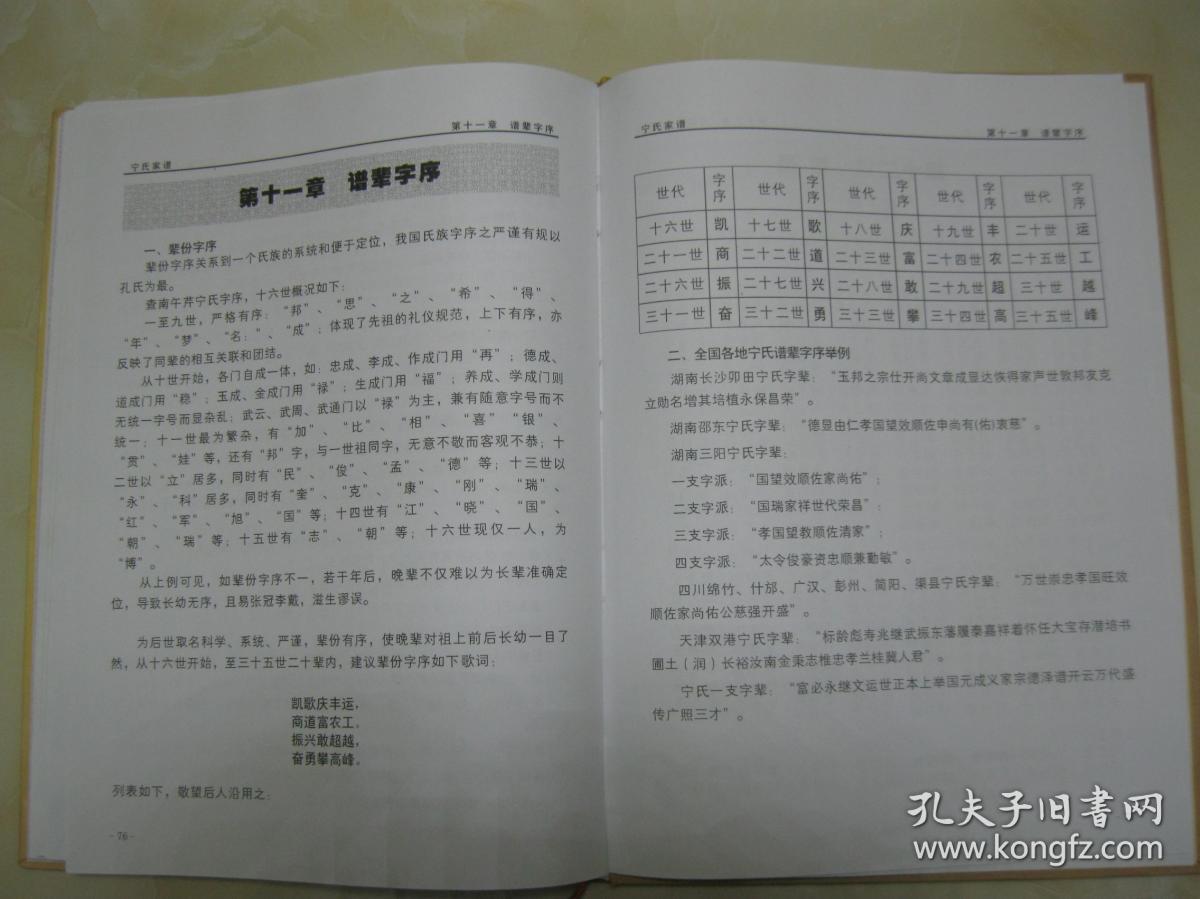 第十一章 谱辈字序
宁氏家谱
第十一章 谱辈字序
一、辈份字序
辈份字序关系到一个氏族的系统和便于定位，我国氏族字序之严谨有规以
孔氏为最。
查南午芹宁氏字序，十六世概况如下：
一至九世，严格有序：“邦”、“思”、“之”、“希”、“得”、
“年”、“梦”、“名：“、“成”；体现了先祖的礼仪规范，上下有序，亦
反映了同辈的相互关联和团结。
从十世开始，各门自成一体，如：忠成、李成、作成门用“再”；德成、
道成门用“稳”；玉成、金成门用“禄”；生成门用“福”；养成、学成门则
无统一字号而显杂乱；武云、武周、武通门以“禄”为主，兼有随意字号而不
统一；十一世最为繁杂，有“加”、“比”、“相”、“喜”“银”、
“贯”、“娃”等，还有“邦”字，与一世祖同字，无意不敬而客观不恭；十
二世以“立”居多，同时有“民”、“俊”、“孟”、“德”等；十三世以
“永”、“科”居多，同时有“奎”、“克”、“康”、“刚”、“瑞”、
“红”、“军”、“旭”、“国”等；十四世有“江”、“晓”、“国”、
“朝”、“瑞”等；十五世有“志”、“朝”等；十六世现仅一人，为
“博”。
从上例可见，如辈份字序不一，若干年后，晚辈不仅难以为长辈准确定
位，导致长幼无序，且易张冠李戴，滋生谬误。
为后世取名科学、系统、严谨，辈份有序，使晚辈对祖上前后长幼一目了
然，从十六世开始，至三十五世二十辈内，建议辈份字序如下歌词：
凯歌庆丰运，
商道富农工。
振兴敢超越，
奋勇攀高峰。
列表如下，敬望后人沿用之：
- 76 -
宁氏家谱
第十一章 谱辈字序
世代 字序 世代 字序 世代 字序 世代 字序 世代 字序
十六世 凯 十七世 歌 十八世 庆 十九世 丰 二十世 运
二十一世 商 二十二世 道 二十三世 富 二十四世 农 二十五世 工
二十六世 振 二十七世 兴 二十八世 敢 二十九世 超 三十世 越
三十一世 奋 三十二世 勇 三十三世 攀 三十四世 高 三十五世 峰
二、全国各地宁氏谱辈字序举例
湖南长沙卯田宁氏字辈：“玉邦之宗仕开尚文章成显达恢得家声世敦邦友克
立勋名增其培植永保昌荣”。
湖南邵东宁氏字辈：“德显由仁孝国望效顺佐申尚有(佑)衷慈”。
湖南三阳宁氏字辈：
一支字派：“国望效顺佐家尚佑”；
二支字派：“国瑞家祥世代荣昌”；
三支字派：“孝国望教顺佐清家”；
四支字派：“太令俊豪资忠顺兼勤敏”。
四川绵竹、什邡、广汉、彭州、简阳、渠县宁氏字辈：“万世崇忠孝国旺效
顺佐家尚佑公慈强开盛”。
天津双港宁氏字辈：“标龄彪寿兆继武振东藩履泰嘉祥着怀任大宝存潜培书
圃土（润）长裕汝南金秉志惟忠孝兰桂冀人君”。
宁氏一支字辈：“富必永继文运世正本上举国元成义家宗德泽谱开云万代盛
传广照三才”。
孔夫子旧书网
www.kongfz.com